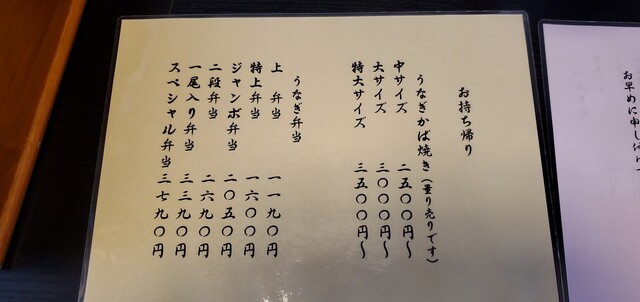 お持ち帰り
うなぎかば焼き(量り売りです)
中サイズ 二五〇〇円〜
大サイズ 三〇〇〇円〜
特大サイズ 三五〇〇円〜
うなぎ弁当
上 弁当 一一九〇円
特上弁当 一六〇〇円
ジャンボ弁当 二〇五〇円
二段弁当 二六九〇円
一尾入り弁当 三三九〇円
スペシャル弁当 三七九〇円
お早めに申し